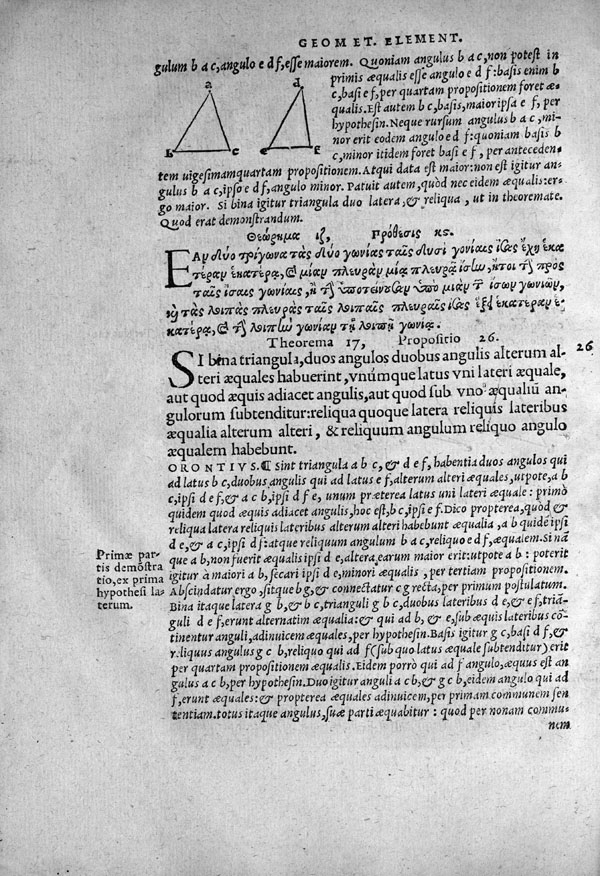 GEOMET. ELEMENT.
gulum b a c, angulo e d f, esse maiorem. Quoniam angulus b a c, non potest in
primis æqualis esse angulo e d f: basis enim b
c, basi e f, per quartam propositionem foret æ-
qualis. Est autem b c, basis, maior ipsa e f, per
hypothesin. Neque rursum angulus b a c, mi-
nor erit eodem angulo e d f: quoniam basis b
c, minor itidem foret basi e f, per anteceden-
a
d
b
c
e
f
tem uigesimamquartam propositionem. Atqui data est maior: non est igitur an-
gulus b a c, ipso e d f, angulo minor. Patuit autem, quòd nec eidem æqualis: er-
go maior. Si bina igitur triangula duo latera, & reliqua, ut in theoremate.
Quod erat demonstrandum.
Θεώρημα ιζ, Πρόθεσις κϛ.
Εὰν δύο τρίγωνα τὰς δύο γωνίας ταῖς δυσὶ γωνίαις ἴσας ἔχῃ ἑκα
τέραν ἑκατέρᾳ, καὶ μίαν πλευρὰν μιᾷ πλευρᾷ ἴσην, ἤτοι τὴν πρὸς
ταῖς ἴσαις γωνίαις, ἢ τὴν ὑποτείνουσαν ὑπὸ μίαν τῶν ἴσων γωνιῶν,
καὶ τὰς λοιπὰς πλευρὰς ταῖς λοιπαῖς πλευραῖς ἴσας ἕξει ἑκατέραν ἑ-
κατέρᾳ, καὶ τὴν λοιπὴν γωνίαν τῇ λοιπῇ γωνίᾳ.
Theorema 17, Propositio 26.
SI bina triangula, duos angulos duobus angulis alterum al- 26
teri æquales habuerint, vnúmque latus vni lateri æquale,
aut quod æquis adiacet angulis, aut quod sub vno æqualiũ an-
gulorum subtenditur: reliqua quoque latera reliquis lateribus
æqualia alterum alteri, & reliquum angulum reliquo angulo
æqualem habebunt.
ORONTIVS. ¶ Sint triangula a b c, & d e f, habentia duos angulos qui
ad latus b c, duobus angulis qui ad latus e f, alterum alteri æquales, utpote, a b
c, ipsi d e f, & a c b, ipsi d f e, unum præterea latus uni lateri æquale: primò
quidem quod æquis adiacet angulis, hoc est, b c, ipsi e f. Dico propterea, quòd &
reliqua latera reliquis lateribus alterum alteri habebunt æqualia, a b quidē ipsi
d e, & a c, ipsi d f: atque reliquum angulum b a c, reliquo e d f, æqualem. Si nā
que a b, non fuerit æqualis ipsi d e, altera earum maior erit: utpote a b: poterit
igitur à maiori a b, secari ipsi d e, minori æqualis, per tertiam propositionem.
Abscindatur ergo, sitque b g, & connectatur c g recta, per primum postulatum.
Bina itaque latera g b, & b c, trianguli g b c, duobus lateribus d e, & e f, trián-
guli d e f, erunt alternatim æqualia: & qui ad b, & e, sub æquis lateribus cō-
tinentur anguli, adinuicem æquales, per hypothesin. Basis igitur g c, basi d f, &
reliquus angulus g c b, reliquo qui ad f (sub quo latus æquale subtenditur) erit
per quartam propositionem æqualis. Eidem porrò qui ad f angulo, æquus est an
gulus a c b, per hypothesin. Duo igitur anguli a c b, & g c b, eidem angulo qui ad
f, erunt æquales: & propterea æquales adinuicem, per primam communem sen
tentiam. totus itaque angulus, suæ parti æquabitur: quod per nonam commu-
nem
Primæ par-
tis demōstra
tio, ex prima
hypothesi la-
terum.